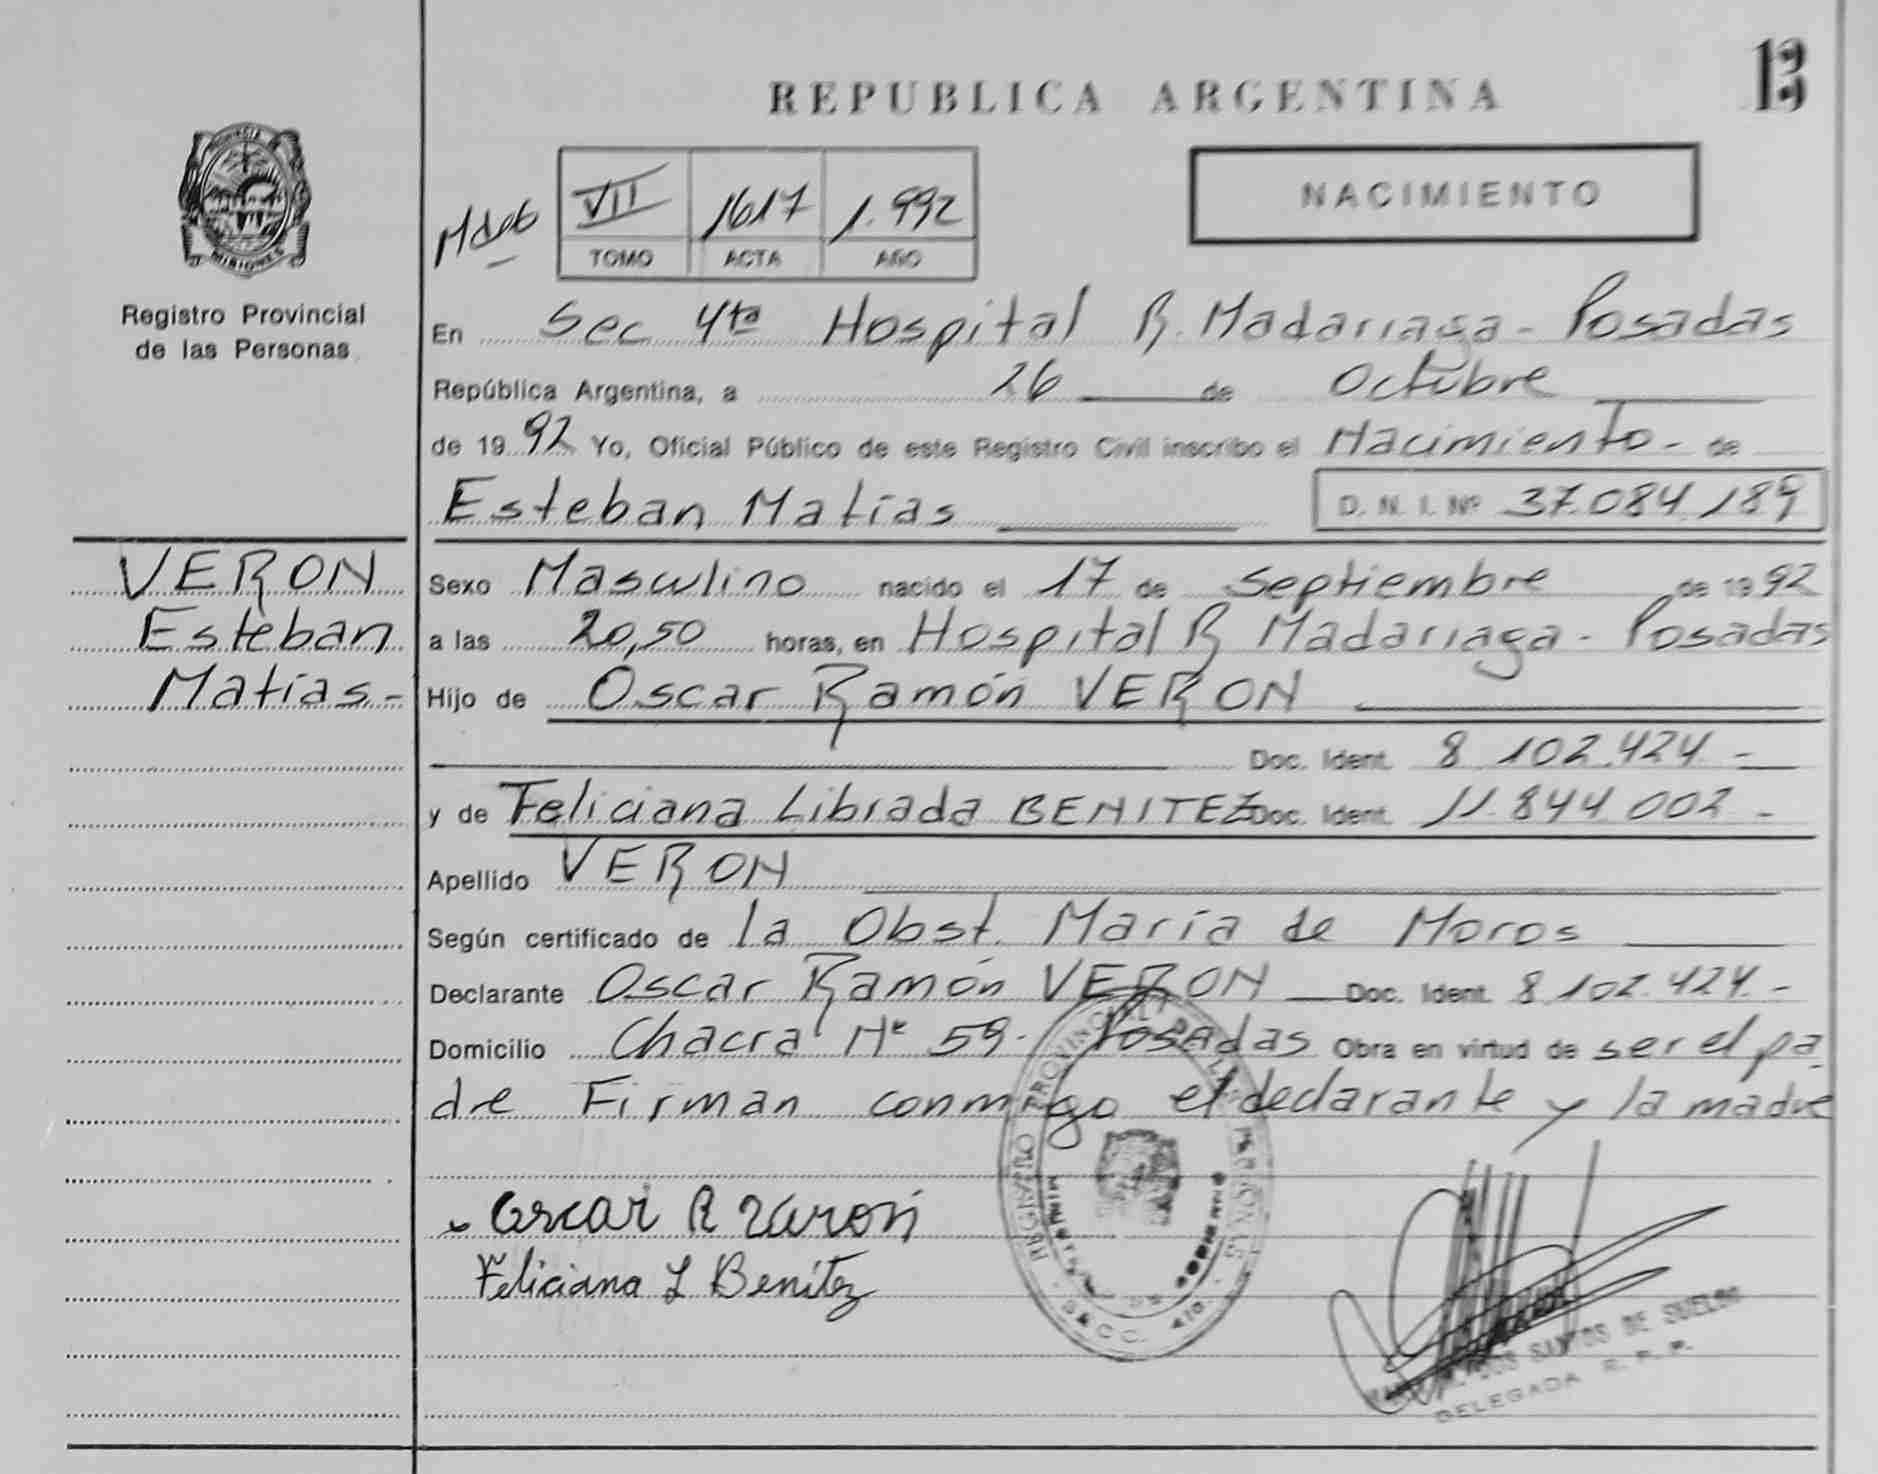 REPUBLICA ARGENTINA
13
PROVINCIA
MISIONES
Registro Provincial
de las Personas
VII 1617 1.992
TOMO ACTA AÑO
NACIMIENTO
En Sec 4ta Hospital R. Madariaga - Posadas
República Argentina, a 26 de Octubre
de 1992 Yo, Oficial Público de este Registro Civil inscribo el Nacimiento - de
Esteban Matías D. N. I. Nº 37.084.189
VERON
Esteban
Matías.-
Sexo Masculino nacido el 17 de Septiembre de 1992
a las 20,50 horas, en Hospital R Madariaga - Posadas
Hijo de Oscar Ramón VERON
Doc. Ident. 8.102.424 -
y de Feliciana Librada BENITEZ Doc. Ident. 11.844.002 -
Apellido VERON
Según certificado de la Obst. María de Moros
Declarante Oscar Ramón VERON Doc. Ident. 8.102.424.-
Domicilio Chacra Nº 59. Posadas Obra en virtud de ser el pa
dre Firman conmigo el declarante y la madre
Oscar R Veron
Feliciana L Benítez
REGISTRO PROVINCIAL DE LAS PERSONAS
MINISTERIO DE GOBIERNO
SECC. 4ta.
SANTOS DE SUELDO
DELEGADA R. P. P.